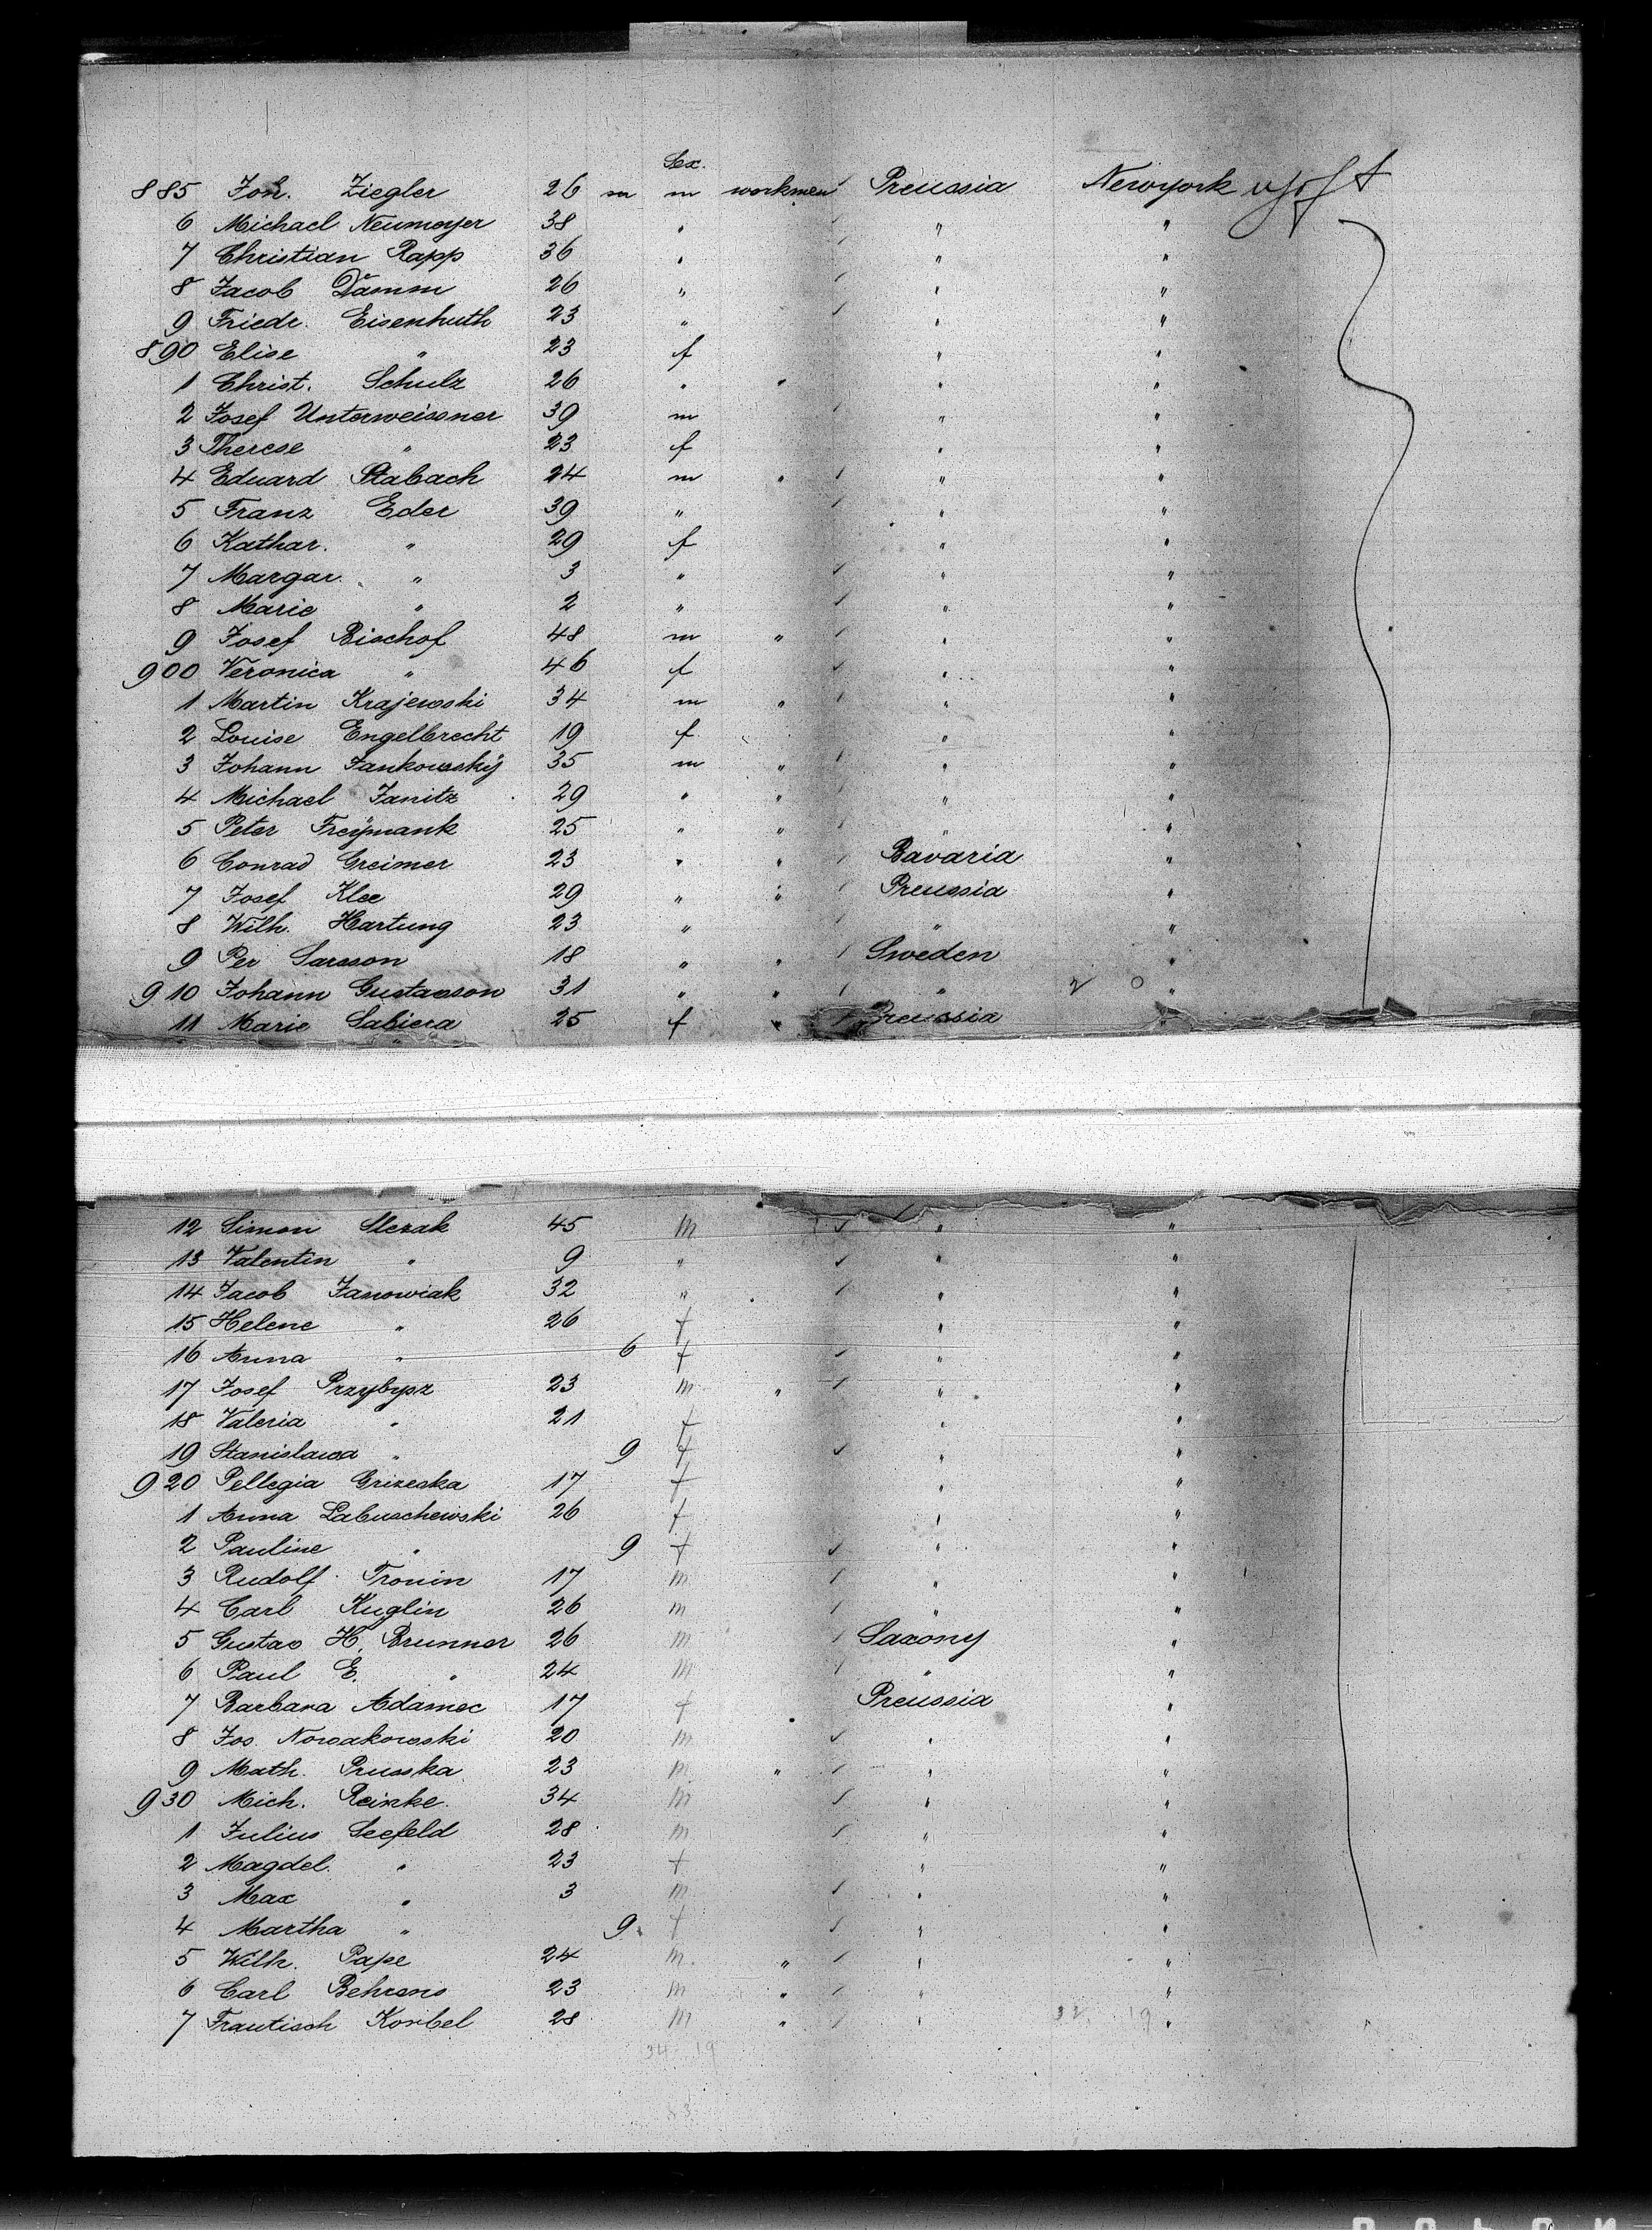 Sex.
885 Joh. Ziegler 26 m m workmen ✓ Preussia Newyork
6 Michael Neumeyer 38 " " "
7 Christian Rapp 36 " ✓ " "
8 Jacob Dămm 26 " ✓ " "
9 Friedr. Eisenhuth 23 " ✓ " "
890 Elise " 23 f " "
1 Christ. Schulz 26 " " " "
2 Josef Unterweissner 39 m ✓ " "
3 Therese " 23 f " "
4 Eduard Stabach 24 m " ✓ " "
5 Franz Eder 39 " ✓ " "
6 Kathar. " 29 f " "
7 Margar. " 3 " ✓ " "
8 Marie " 2 " ✓ " "
9 Josef Bischof 48 m " ✓ " "
900 Veronica " 46 f ✓ " "
1 Martin Krajewski 34 m " ✓ " "
2 Louise Engelbrecht 19 f " "
3 Johann Jankowskÿ 35 m " ✓ " "
4 Michael Janitz 29 " " ✓ " "
5 Peter Freÿmank 25 " " ✓ " "
6 Conrad Greimer 23 " " ✓ Bavaria "
7 Josef Klee 29 " " ✓ Preussia "
8 Wilh. Hartung 23 " ✓ " "
9 Per Larsson 18 " " ✓ Sweden "
910 Johann Gustavson 31 " " ✓ " 2 0 "
11 Marie Sabiera 25 f " ✓ Preussia "
12 Simon Slezak 45 m ✓ " "
13 Valentin " 9 " ✓ " "
14 Jacob Janowiak 32 " ✓ " "
15 Helene " 26 f " "
16 Anna " 6 f ✓ " "
17 Josef Przybysz 23 m " ✓ " "
18 Valeria " 21 f " "
19 Stanislawa " 9 f ✓ " "
920 Pellegia Grizeska 17 f " "
1 Anna Labuschewski 26 f " "
2 Pauline " 9 f ✓ " "
3 Rudolf Tronin 17 m ✓ " "
4 Carl Kuglin 26 m ✓ " "
5 Gustav H. Brunner 26 m ✓ Saxony "
6 Paul E. " 24 m ✓ " "
7 Barbara Adamec 17 f Preussia "
8 Jos. Nowakowski 20 m ✓ " "
9 Math. Prusska 23 m " ✓ " "
930 Mich. Reinke 34 m ✓ " "
1 Julius Seefeld 28 m ✓ " "
2 Magdel. " 23 f " "
3 Max " 3 m ✓ " "
4 Martha " 9 f ✓ " "
5 Wilh. Pape 24 m " ✓ " "
6 Carl Behrens 23 m " ✓ " "
7 Frantisch Korbel 28 m " ✓ " 32 19 "
34 19
53